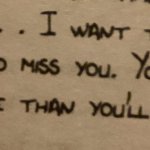 .. I WANT
MISS YOU.
THAN YOU'LL